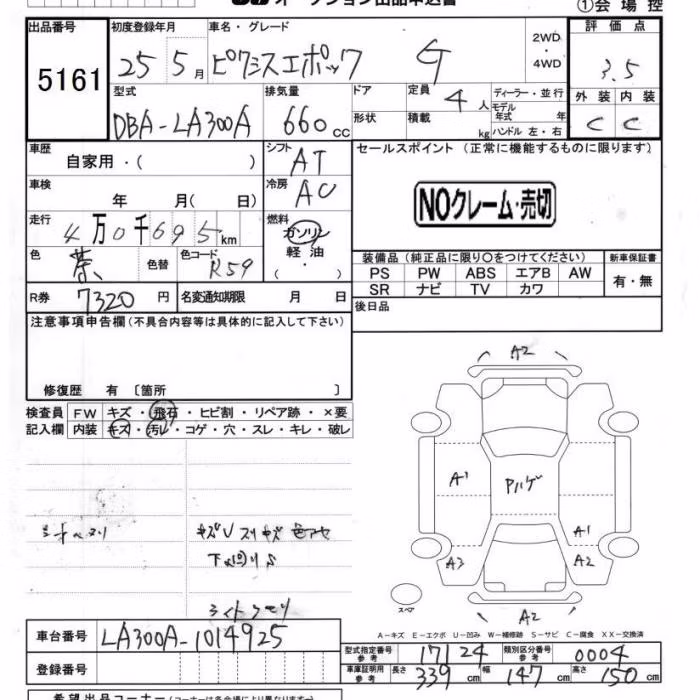 ①会場控
出品番号
5161
初度登録年月
25 5月
車名・グレード
ピクシスエポック G
2WD
・
4WD
評価点
3.5
外装 内装
C C
型式
DBA-LA300A
排気量
660 cc
ドア
形状
定員 4人
積載 kg
ディーラー・並行
モデル
年式 年
ハンドル 左・右
車歴
自家用・( )
シフト
AT
車検
年 月( 日)
冷房
AC
走行
4万0千695km
燃料
ガソリン
軽油
( ・ )
色
茶
色替
色コード
R59
R券
7320円
名変通知期限 月 日
セールスポイント (正常に機能するものに限ります)
NOクレーム・売切
装備品 (純正品に限り〇をつけてください)
PS PW ABS エアB AW
SR ナビ TV カワ
新車保証書
有・無
後日品
注意事項申告欄(不具合内容等は具体的に記入して下さい)
修復歴 有 〔箇所 〕
検査員 FW キズ・飛石・ヒビ割・リペア跡・×要
記入欄 内装 キズ・汚レ・コゲ・穴・スレ・キレ・破レ
キズU スリキズ 色アセ
下廻りS
ライトクモリ
A2
A1
Pハゲ
A1
A3
A2
スペア
A2
A-キズ E-エクボ U-凹み W-補修跡 S-サビ C-腐食 XX-交換済
車台番号 LA300A-1014925
登録番号
型式指定番号
参考
17124
類別区分番号
参考
0004
車庫証明用
参考
長さ 339cm 幅 147cm 高さ 150cm
希望出品コーナー(コーナーは各会場により異なります)